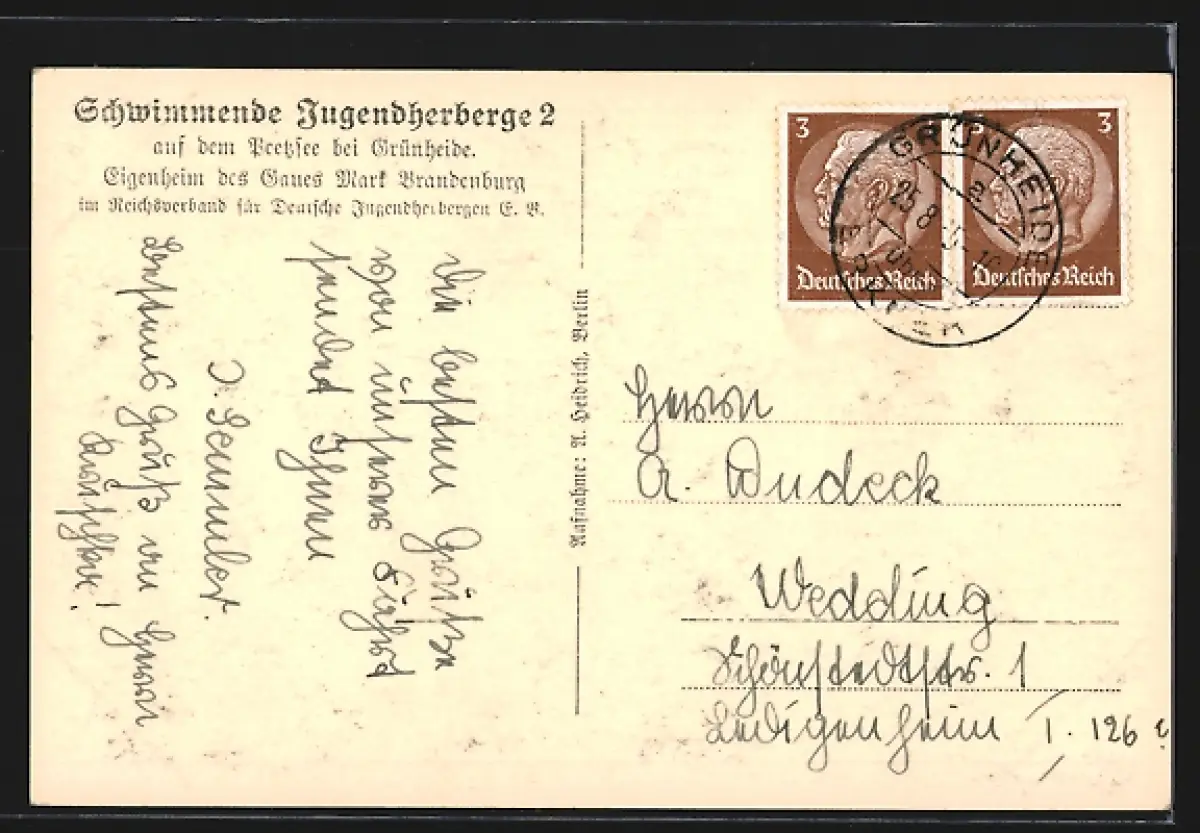 Schwimmende Jugendherberge 2
auf dem Peetzsee bei Grünheide.
Eigenheim des Gaues Mark Brandenburg
im Reichsverband für Deutsche Jugendherbergen E. V.
Die besten Grüße
von unserer Fahrt
sendet Ihnen
Besten Gruß an Herrn
Aufnahme: A. Heidrich, Berlin
3
3
Deutsches Reich
Deutsches Reich
GRÜNHEIDE
a
25.8
ERKNER
Herrn
A. Dudeck
Wedding
Schönstedtstr. 1
Ledigenheim I. 126 c